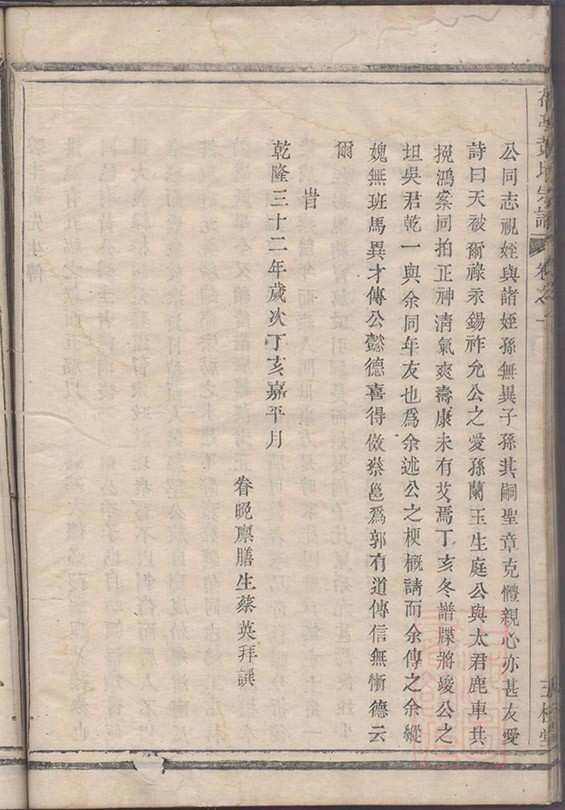 公同志視姪與諸姪孫無異子孫其嗣聖章克體親心亦甚友愛
詩曰天被爾祿永錫祚允公之愛孫蘭玉生庭公與太君鹿車共
挽鴻案同拍正神清氣爽壽康未有艾焉丁亥冬譜牒將竣公之
坦吳君乾一與余同年友也爲余述公之梗概請而余傳之余縱
媿無班馬異才傳公懿德喜得倣蔡邕爲郭有道傳信無慚德云
爾
旹
乾隆三十二年歲次丁亥嘉平月
眷晚廪膳生蔡英拜譔